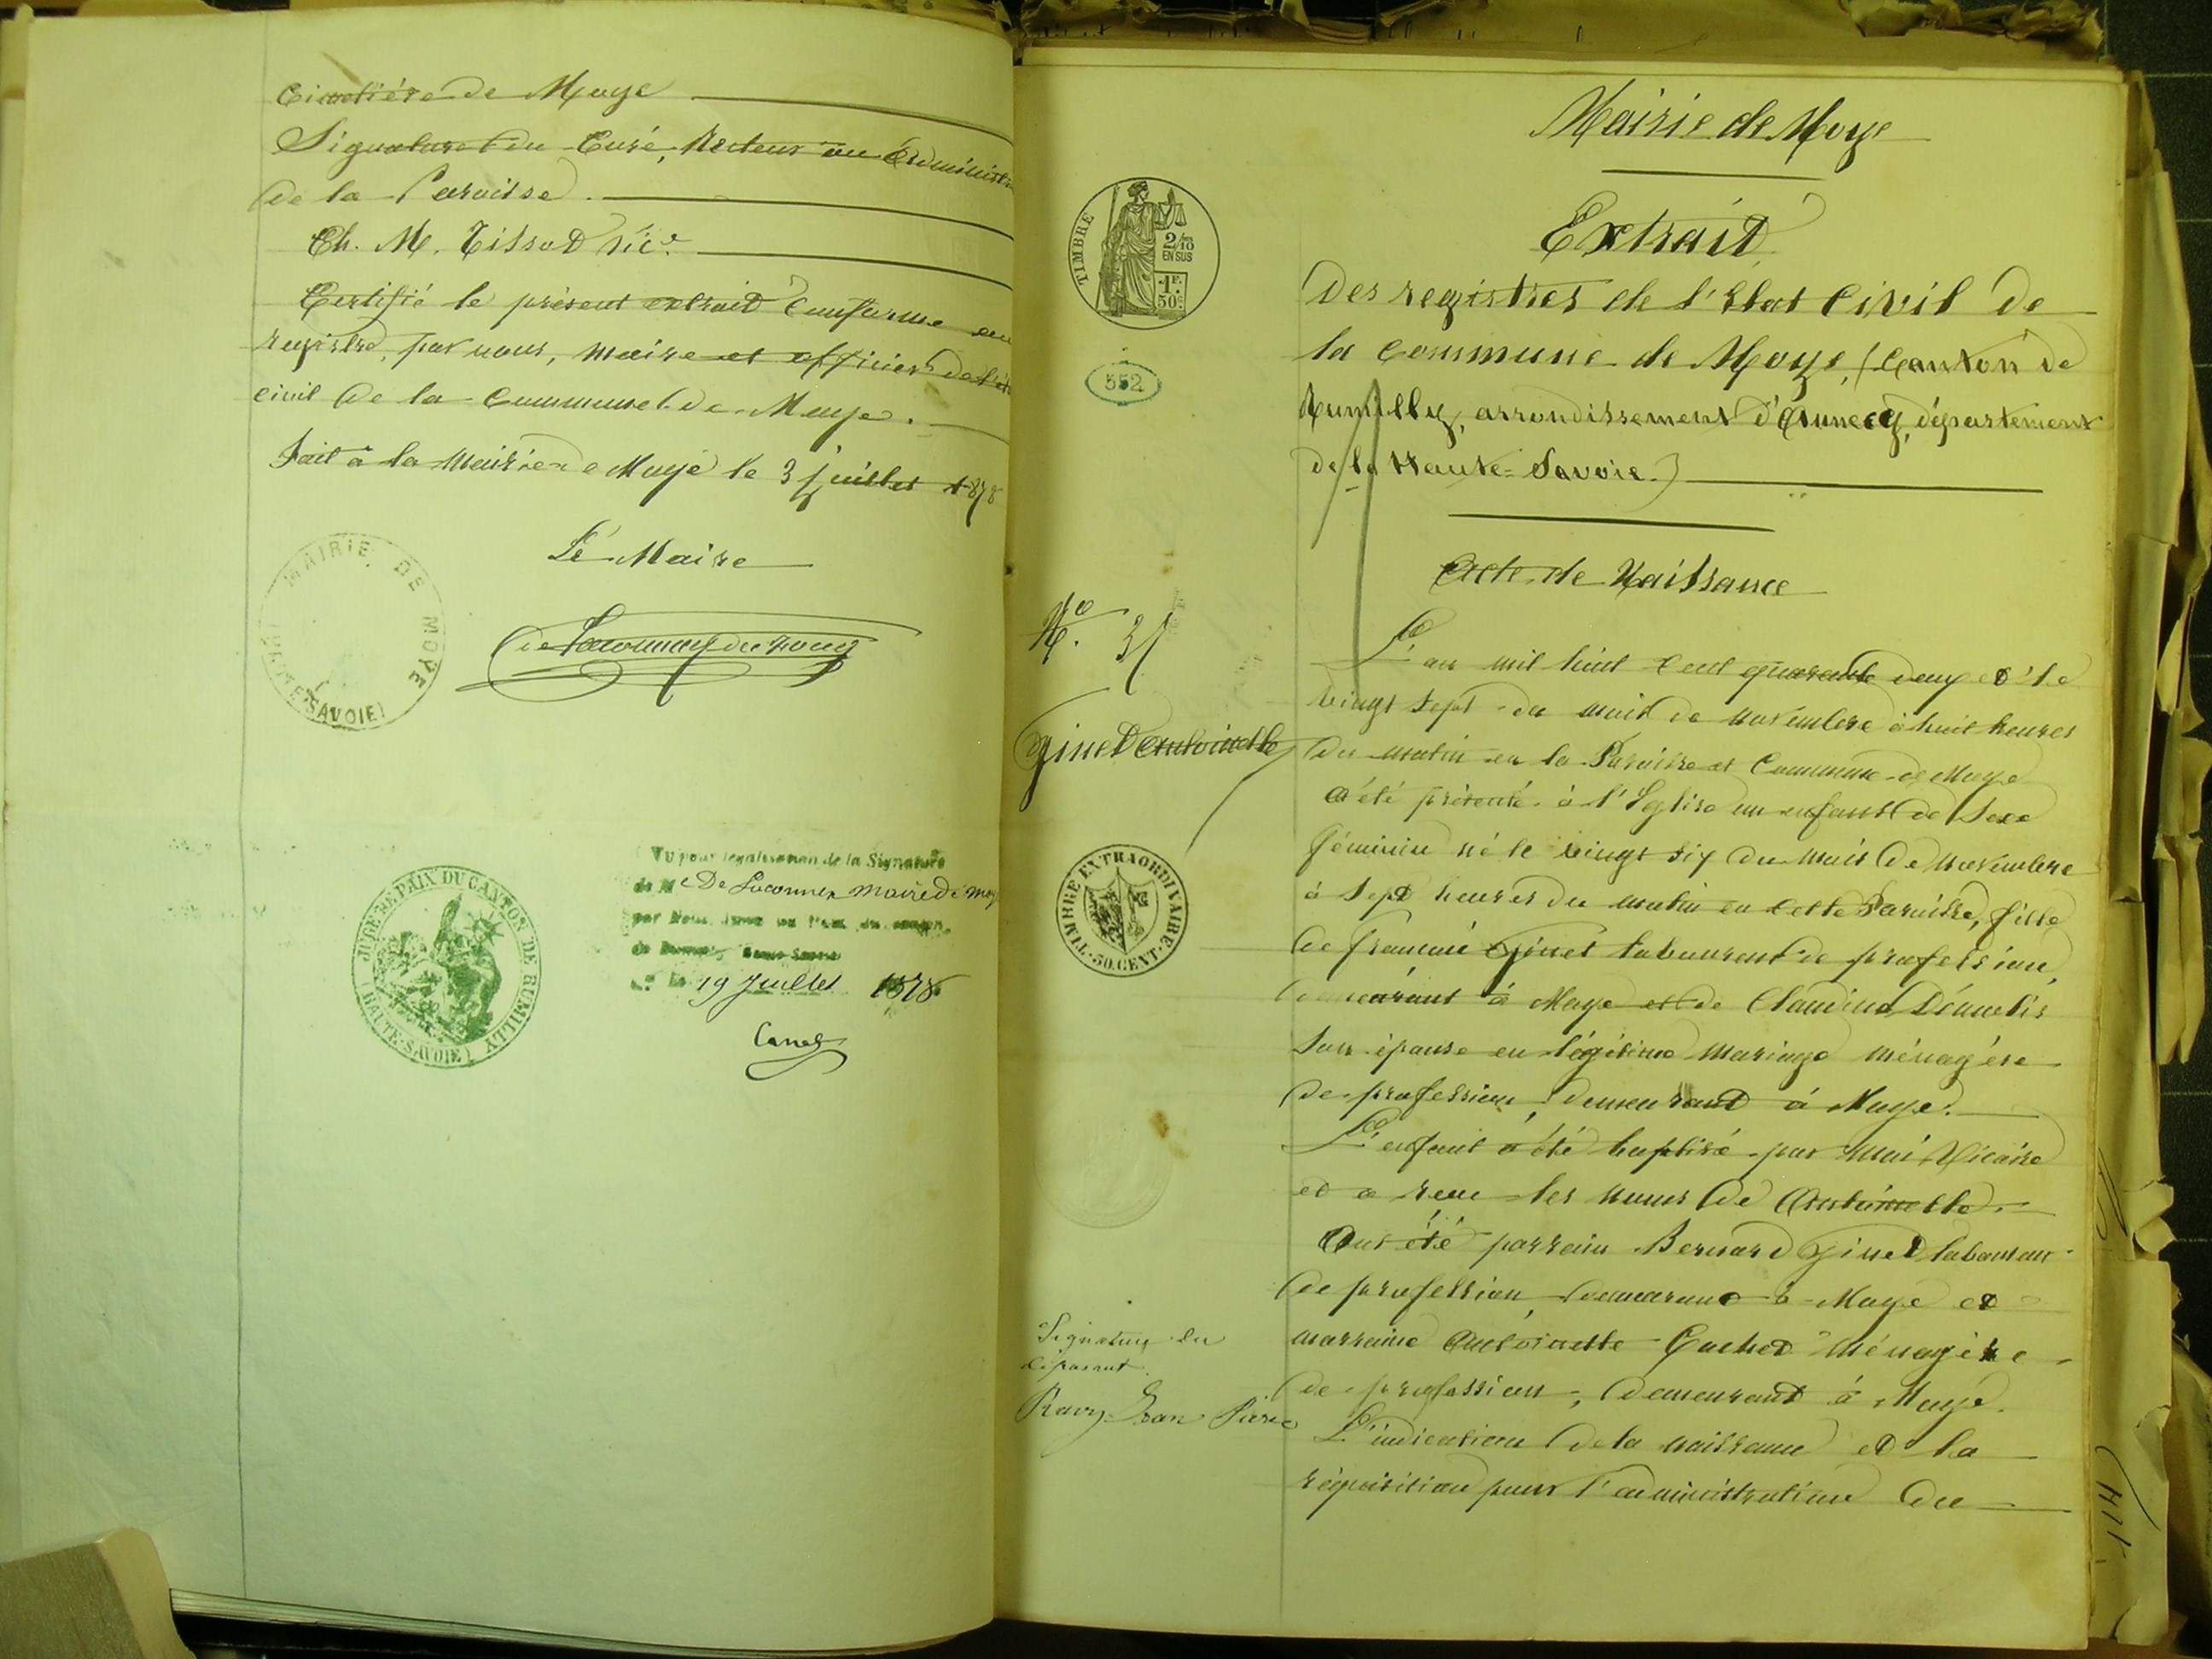 Cimetière de Moye
Signature du Curé, Recteur ou Administr
de la Paroisse.
Ch. M. Tissot vic.e
Certifié le présent extrait conforme au
registre, par nous, maire et officier de l'ét
civil de la Commune de Moye.
Fait à la Mairie de Moye le 3 juillet 1878
Le Maire
MAIRIE DE MOYE
(HAUTE-SAVOIE)
JUGE DE PAIX DU CANTON DE RUMILLY
(HAUTE-SAVOIE)
Vu pour légalisation de la Signature
de Mr De Maire de Moy
par Nous Juge de Paix du canton
de Haute-Savoie
le 19 Juillet 1878
Mairie de Moye
TIMBRE
2/10
EN SUS
1F.
50c.
552
Extrait
des registres de l'Etat Civil de
la Commune de Moye, (Canton de
Rumilly, arrondissement d'Annecy, département
de la Haute-Savoie.)
Acte de Naissance
No.
Ginet Antoinette
L'an mil huit cent quarante deux et le
vingt sept du mois de novembre à huit heures
du matin en la Paroisse et Commune de Moye
a été présenté à l'Eglise un enfant de Sexe
féminin né le vingt six du mois de novembre
à sept heures du matin en cette Paroisse, fille
de françois Ginet laboureur de profession,
demeurant à Moye et de Claudine Démotis
son épouse en légitime mariage ménagère
de profession, demeurant à Moye.
TIMBRE EXTRAORDINAIRE
50.CENT.
L'enfant a été baptisé par moi Vicaire
et a reçu les noms de Antoinette.
Ont été parrain Bernard Ginet laboureur
de profession, demeurant à Moye et
marraine Antoinette Gachet ménagère
de profession, demeurant à Moye.
Signature du
déposant.
Ravy Jean Pierre
L'indication de la naissance et la
réquisition pour l'administration du